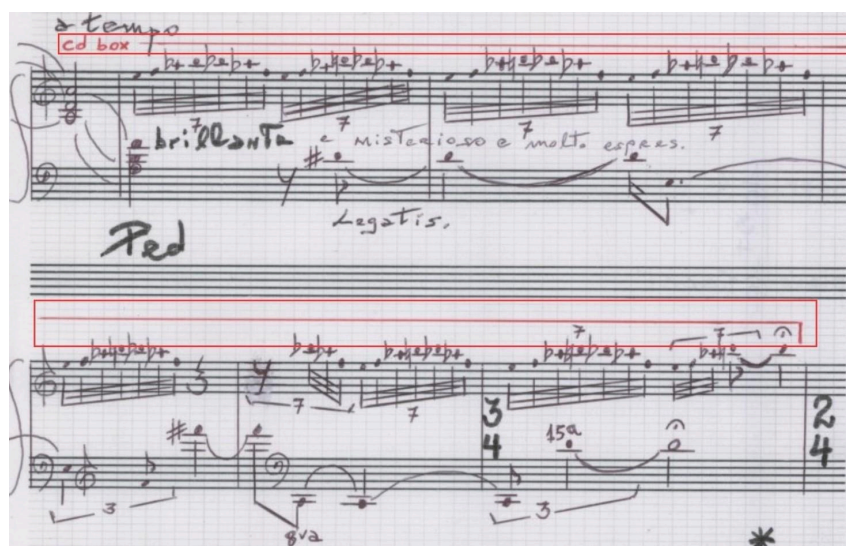 a tempo
cd box
7 7 7 7
brillante e misterioso e molto espres.
Legatiss.
Ped
7 7
7 7
3 4
2 4
15a
3 3
8va
*